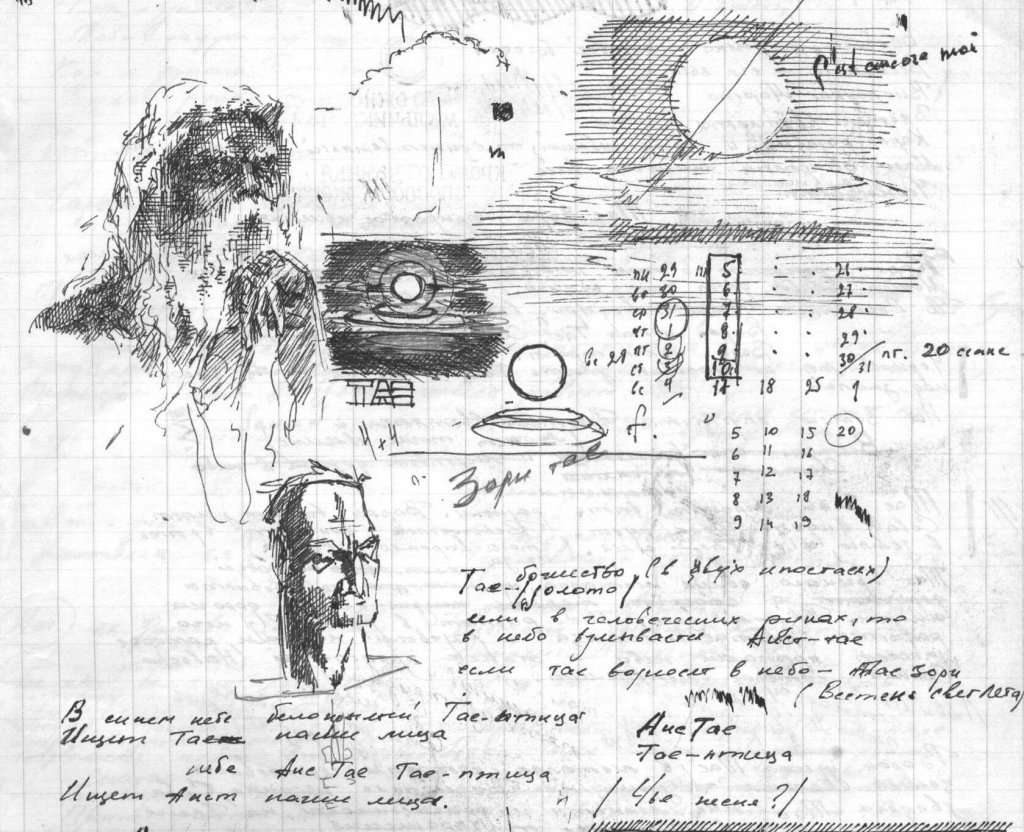 c'est encore moi
пн 29 5 . . 26
вт 30 6 . . 27
ср 31 7 . . 28
чт 1 8 . . 29
вс 28 пт 2 9 . . 30 / 31 пт. 20
сб 3 10
вс 4 11 18 25 1
ТАЕ
4x4
Зори тае
5 10 15 20
6 11 16
7 12 17
8 13 18
9 14 19
Тае- божество (в двух ипостасях)
/золото/
если в человеческих руках, то
в небо взмывает Аист-тае
если тае в небо - Тае зори
(Вестник света)
В синем небе белокрылый Тае-птица
Ищет Тае наши лица
небе Аис Тае Тае-птица
Ищет Аист наши лица.
Аис Тае
Тае-птица
/ Чье песня? /